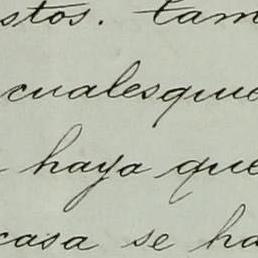 stos. tam
cualesquie
haya que
casa se ha